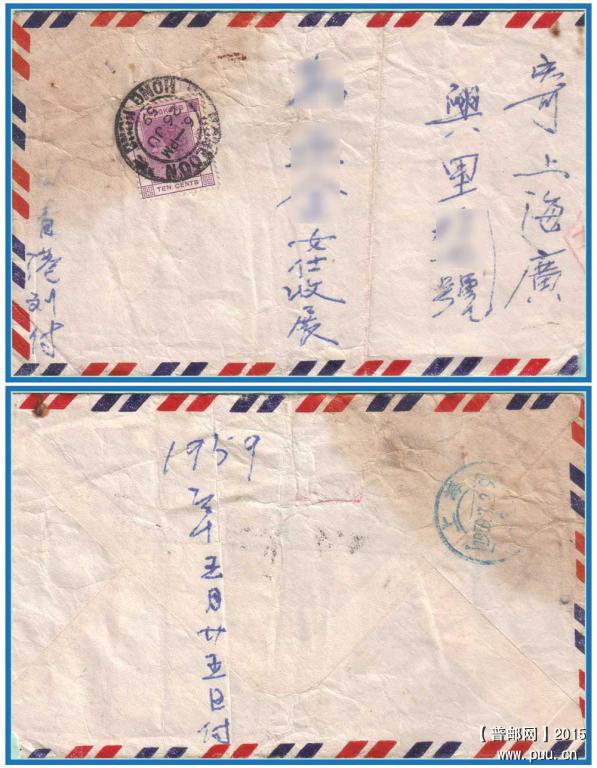 寄上海廣
興里
號
女仕收展
香港刘付
HONG KONG
TEN CENTS
6 PM
26 JU
59
1959
年五月廿五日付
上海
【普邮网】2015
www.puu.cn